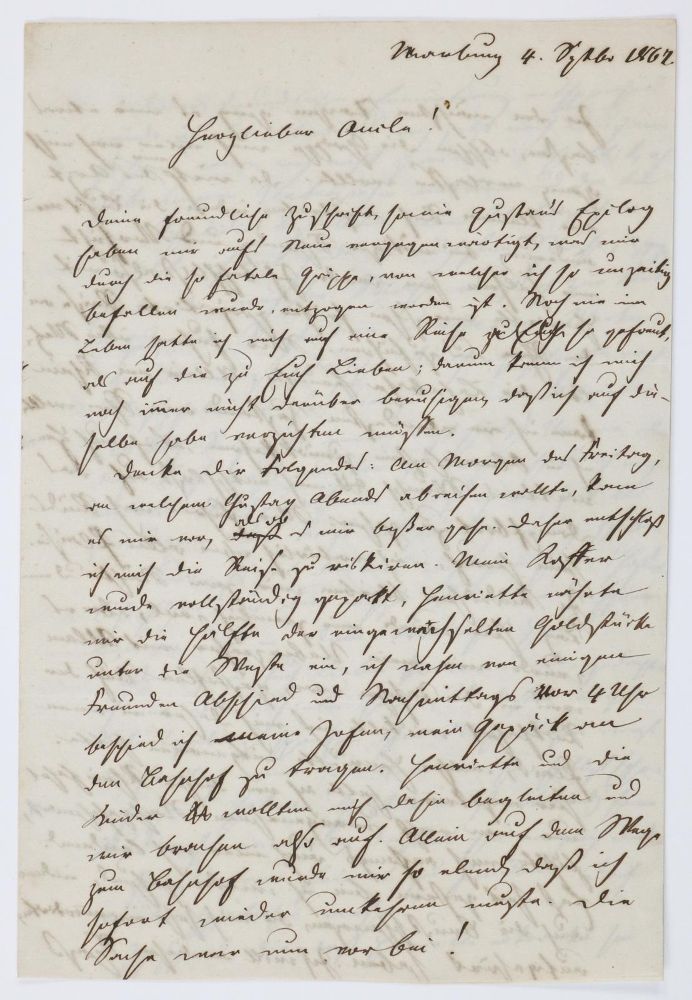 Marburg 4. Sptbr 1867.
Herzlieber Onkle!
Deine freundliche Zuschrift, sowie Gustav's Epilog
haben mir aufs Neue vergegenwärtigt, was mir
durch die so fatale Grippe, von welcher ich so unzeitig
befallen wurde, entzogen worden ist. Noch nie im
Leben hatte ich mich auf eine Reise so gefreut,
als auf die zu Euch Lieben; darum kann ich mich
noch immer nicht darüber beruhigen, daß ich auf die-
selbe habe verzichten müssen.
Denke Dir Folgendes: Am Morgen des Freitag,
an welchem Gustav Abends abreisen wollte, kam
es mir vor, als ob es mir beßer gehe. Daher entschloß
ich mich die Reise zu riskiren. Mein Koffer
wurde vollständig gepackt, Henriette nähte
mir die Hälfte der eingewechselten Goldstücke
unter die Weste ein, ich nahm von einigen
Freunden Abschied und Nachmittags vor 4 Uhr
beschied ich meine Johan, mein Gepäck an
den Bahnhof zu tragen. Henriette und die
Kinder wollten mich dahin begleiten und
wir brachen also auf. Allein auf dem Wege
zum Bahnhof wurde mir so elend, daß ich
sofort wieder umkehren mußte. Die
Sache war nun vorbei!